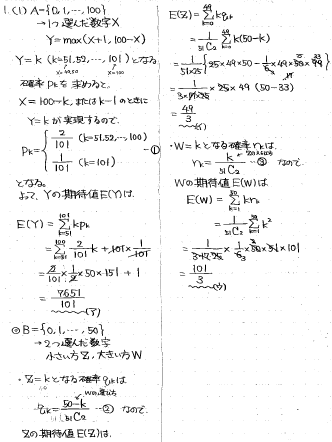 1. (1) A={0,1,…,100}
→1つ選んだ数字X
Y=max(X+1, 100-X)
Y=k (k=51,52,…,101)となる
X=49,50 X=100
確率Pkを求めると。
X=100-k, またはk-1のときに
Y=kが実現するので.
Pk= { 2/101 (k=51,52,…,100)
1/101 (k=101) —①
となる。
よって、Yの期待値E(Y)は、
E(Y)=Σ[k=51→101] kPk
=Σ[k=51→100] 2/101 k + 101×1/101
=2/101×1/2×50×151+1
=7651/101 (ア)
② B={0,1,…,50}
→2つ選んだ数字
小さい方Z, 大きい方W
・Z=kとなる確率qkは
Wの選び方
qk=(50-k)/51C2 —② なので.
Zの期待値E(Z)は.
E(Z)=Σ[k=0→49] kqk
=1/51C2 Σ[k=0→49] k(50-k)
=1/(51×25) {25×49×50-1/6×49×50×99}
=1/(3×17×25)×25×49 (50-33)
=49/3 (イ)
・W=kとなる確率rkは.
rk=k/51C2 —③ なので
Wの期待値E(W)は
E(W)=Σ[k=1→50] krk
=1/51C2 Σ[k=1→50] k²
=1/(3×17×25)×1/6×50×51×101
=101/3 (ウ)